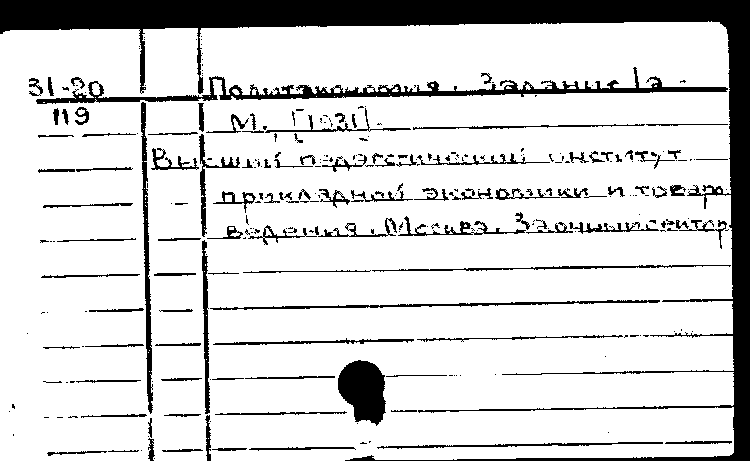 31-20 Политэкономия. Задание 1а -
119 М., [1931].
Высший педагогический институт
прикладной экономики и товаро
ведения. Москва. Заочный сектор